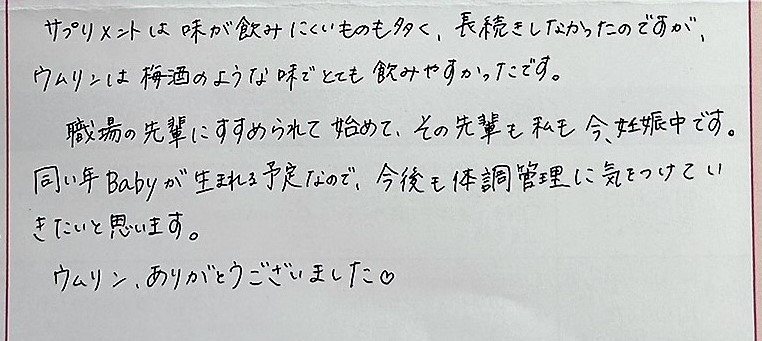 サプリメントは味が飲みにくいものも多く、長続きしなかったのですが、
ウムリンは梅酒のような味でとても飲みやすかったです。
職場の先輩にすすめられて始めて、その先輩も私も今、妊娠中です。
同い年Babyが生まれる予定なので、今後も体調管理に気をつけてい
きたいと思います。
ウムリン、ありがとうございました♡